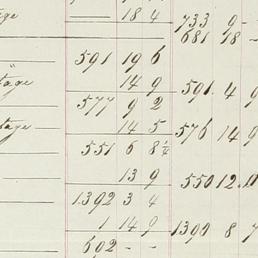 18 4 733 9 -
681 18 -
591 19 6
14 9 591 4 9
577 9 2
14 5 576 14 9
551 6 8¼
13 9 550 12
1392 3 4
1 14 9 1390 8 7
602 - -